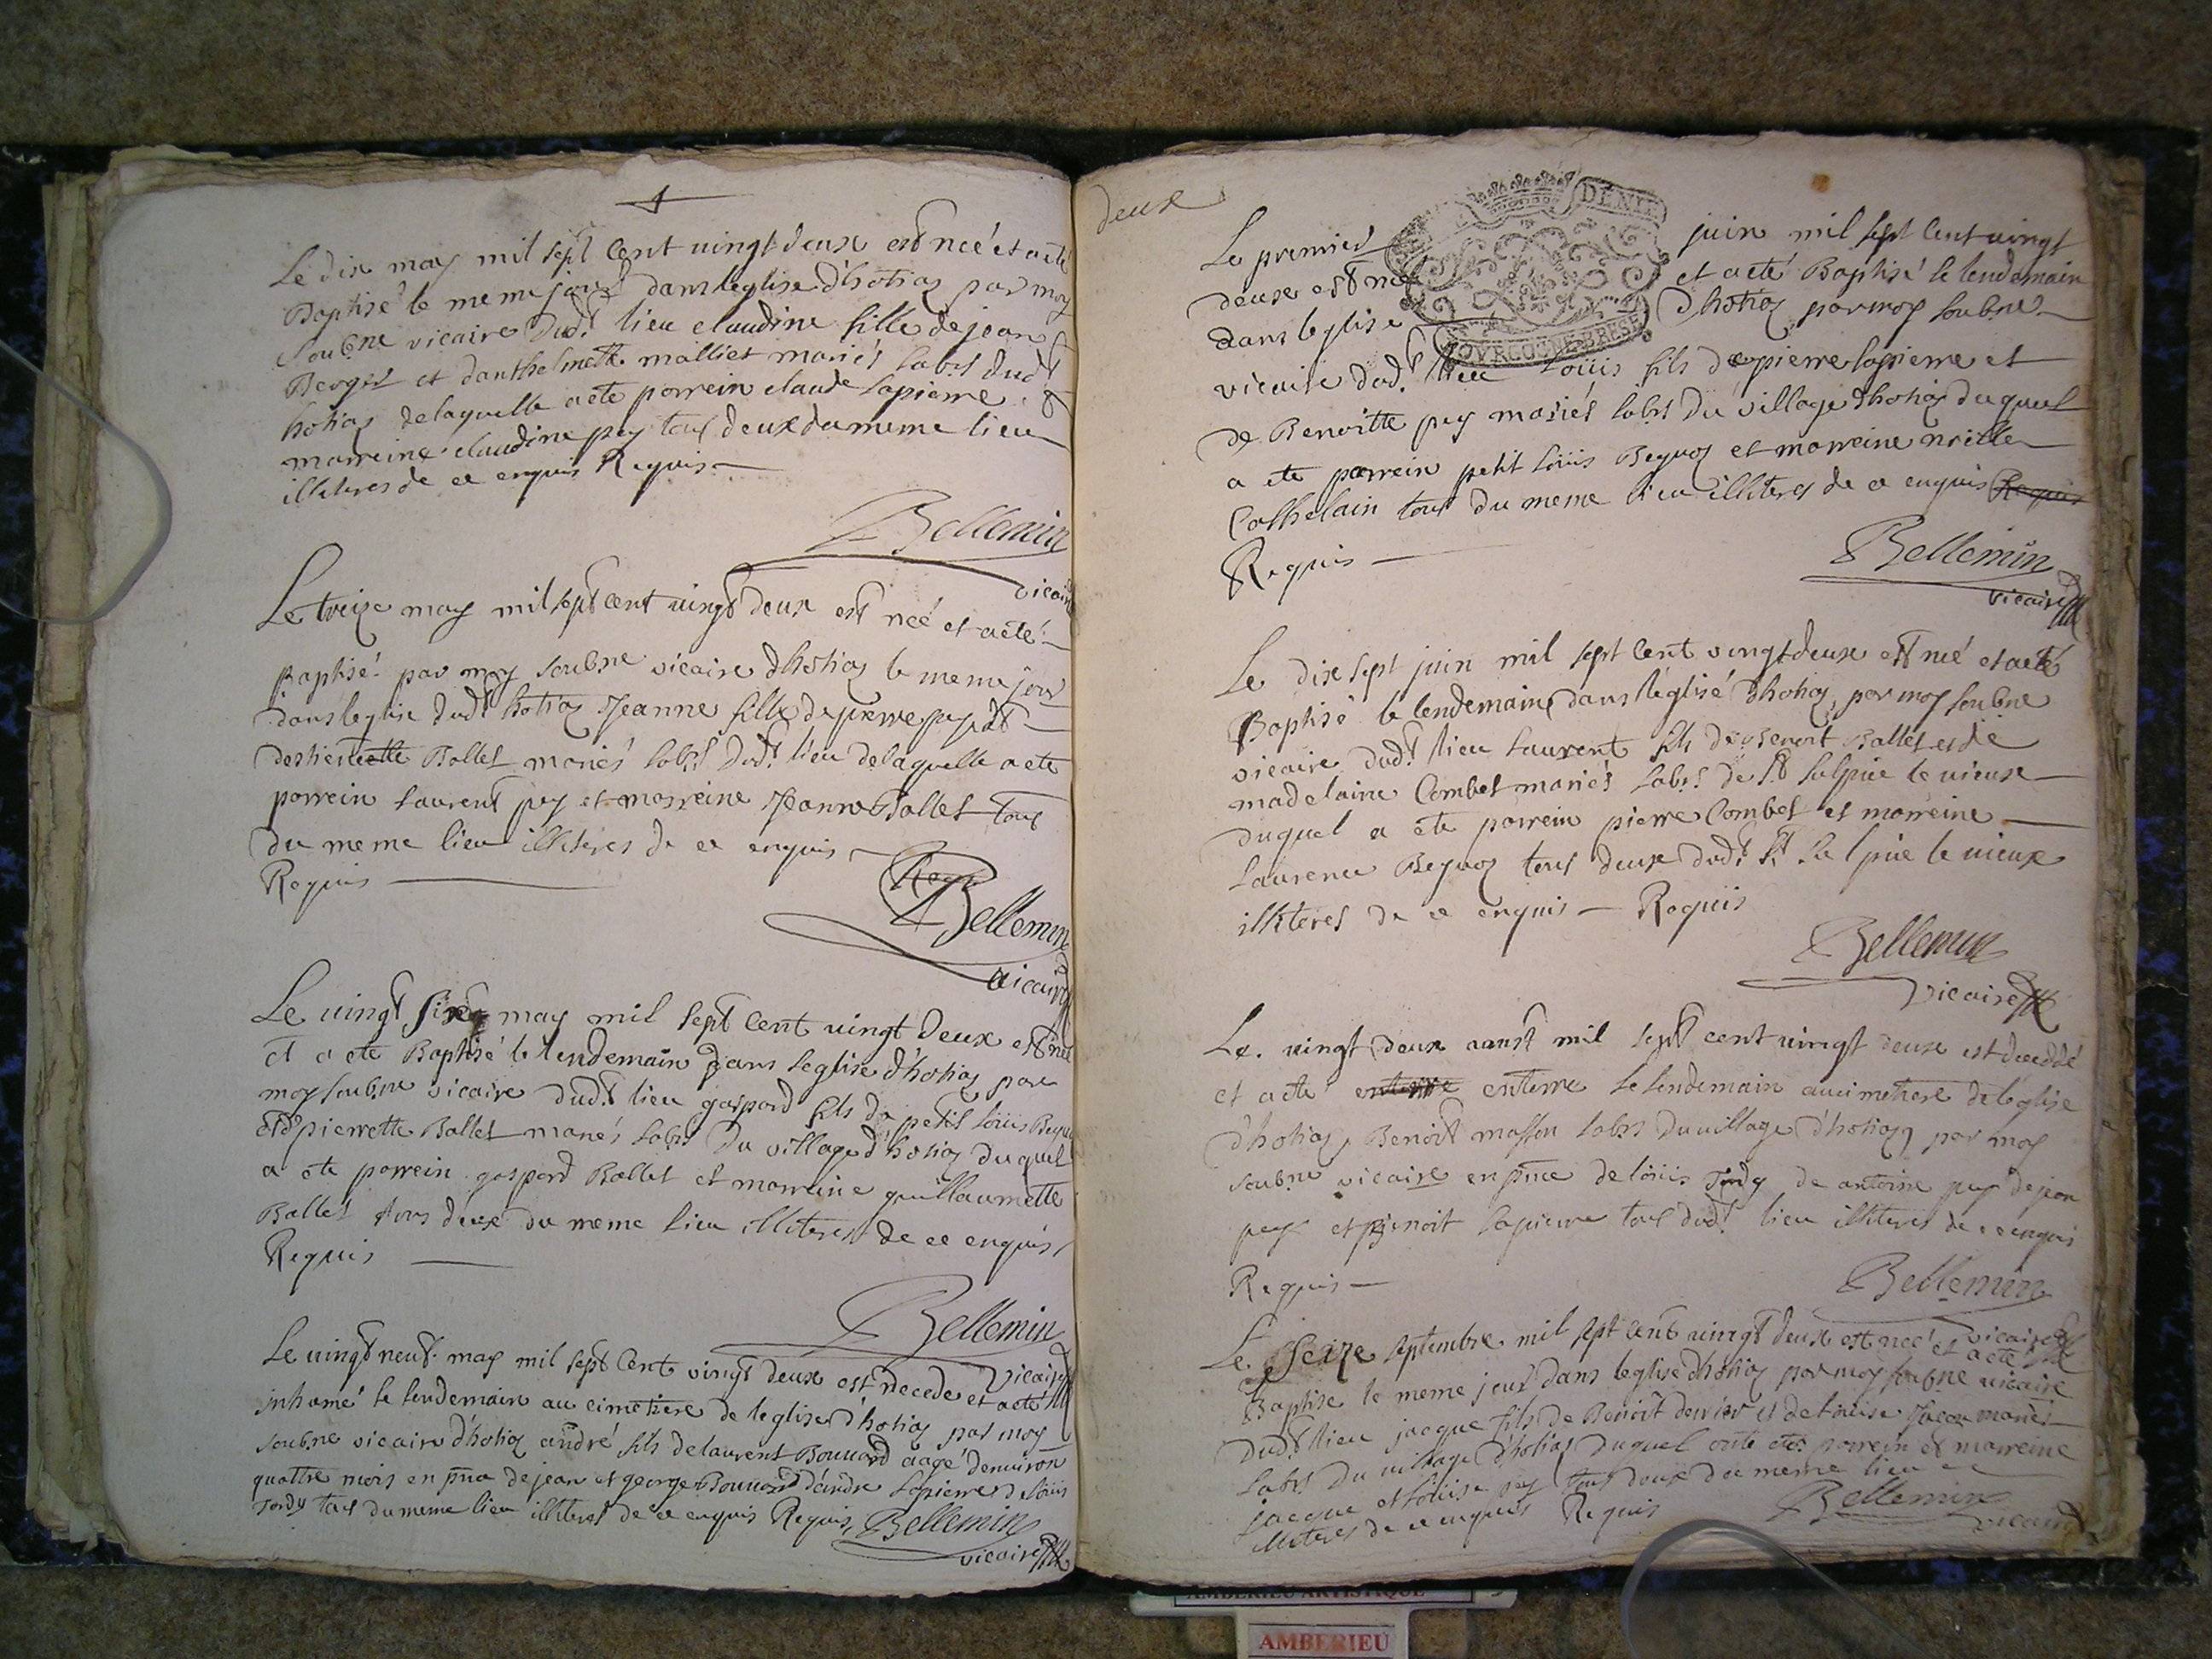 Le dix may mil sept Cent vingt deux est neé et a eté
Baptisé le meme jour dans leglise d'hotiaz par moy
soubne vicaire dudt lieu claudine fille de jean
Berger et danthelmette malliet mariés labrs dudt
hotiaz de laquelle a ete parrein claude lapierre &
marreine claudine pey tous deux du meme lieu
illiteres de ce enquis Requis
Bellemin
vicaire
Le treize may mil sept cent vingt deux est neé et a eté
Baptisé par moy soubne vicaire dhotiaz le meme jour
dans leglise dudt hotiaz Jeanne fille de pierre pey et
Ballet mariés labrs dudt lieu de laquelle a ete
parrein laurent pey et marreine Jeanne Ballet tous
du meme lieu illiteres de ce enquis
Requis
Bellemin
vicaire
Le vingt six may mil sept cent vingt deux est né
et a ete Baptisé le lendemain dans leglise d'hotiaz par
moy soubne vicaire dudt lieu gaspard fils de petit loüis Beguoz
et de pierrette Ballet mariés labrs du village d'hotiaz duquel
a ete parrein gaspard Ballet et marreine guillaumette
Ballet tous deux du meme lieu illiteres de ce enquis
Requis
Bellemin
vicaire
Le vingt neuf may mil sept Cent vingt deux est decede et a eté
inhumé le lendemain au cimetiere de leglise d'hotiaz par moy
soubne vicaire d'hotiaz andré fils de laurent Bouvard aagé denviron
quattre mois en pnce de jean et george Bouvard d'andre lapierre de loüis
Tordy tous du meme lieu illiteres de ce enquis Requis Bellemin
vicaire
deux
DENIE
BOURGOGNE BRESSE
Le premier juin mil sept Cent vingt
deux est né et a eté Baptisé le lendemain
dans leglise dhotiaz par moy soubne
vicaire dudt lieu Loüis fils de pierre lapierre et
de Benoitte pey mariés labrs du village dhotiaz duquel
a ete parrein petit loüis Beguoz et marreine
Cathelain tous du meme lieu illiteres de ce enquis Requis
Requis
Bellemin
vicaire
Le dix sept juin mil sept Cent vingt deux est né et a eté
Baptisé le lendemain dans léglise dhotiaz par moy soubne
vicaire dudt lieu laurent fils de Benoit Ballet et de
madelaine Combet mariés labrs de St Sulpice le vieux
duquel a ete parrein pierre Combet et marreine
laurence Beguoz tous deux dudt St Sulpice le vieux
illiteres de ce enquis Requis
Bellemin
vicaire
Le vingt deux aoust mil sept cent vingt deux est decedé
et a eté enterre enterre le lendemain au cimetiere de leglise
d'hotiaz Benoit masson labrs du village d'hotiaz par moy
soubne vicaire en pnce de loüis Tordy de antoine pey de jean
pey et Benoit lapierre tous dudt lieu illiteres de ce enquis
Requis
Bellemin
vicaire
Le Seize septembre mil sept cent vingt deux est neé et a eté
Baptise le meme jour dans leglise dhotiaz par moy soubne vicaire
dudt lieu jacque fils de Benoit et de louise mariés
labrs du village d'hotiaz duquel ont eté parrein et marreine
jacque et loüise pey tous deux du meme lieu
illiteres de ce enquis Requis
Bellemin
vicaire
AMBERIEU ARTISTIQUE
AMBERIEU